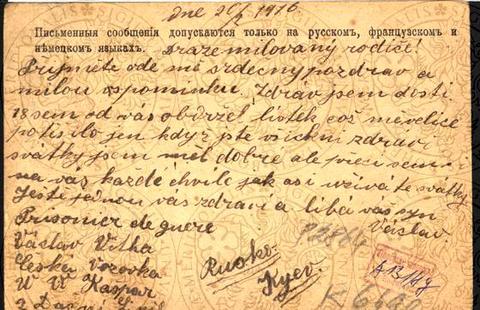 dne 20/1 1916
Письменныя сообщенія допускаются только на русском, французском и
нѣмецком языкахъ. Drazemilovaný rodiče!
Přijmete ode mě srdečny pozdrav a
milou vspominku. Zdrav jsem dosti.
18 sem od vás obdržel listek což mě velice
potisilo jen když jste všichni zdravi
svátky jsem měl dobré ale přeci sem
na vás každé chvile jak asi užíváte svátky
Ještě jednou vás zdraví a líbá váš syn
Prisonier de guere Václav.
Václav Vltha
Česká
U V. Kaspar
Rusko
Kyev